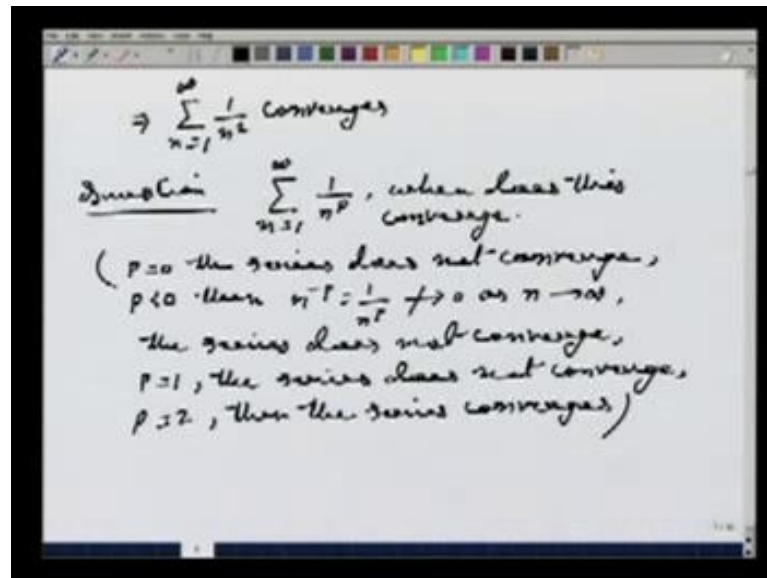 ⇒ ∑_{n=1}^{∞} 1/n² converges
Question ∑_{n=1}^{∞} 1/n^p, when does this
converge.
( p=0 the series does not converge,
p<0 then n^{-p} = 1/n^p ↛ 0 as n → ∞,
the series does not converge,
p=1, the series does not converge,
p=2, then the series converges)